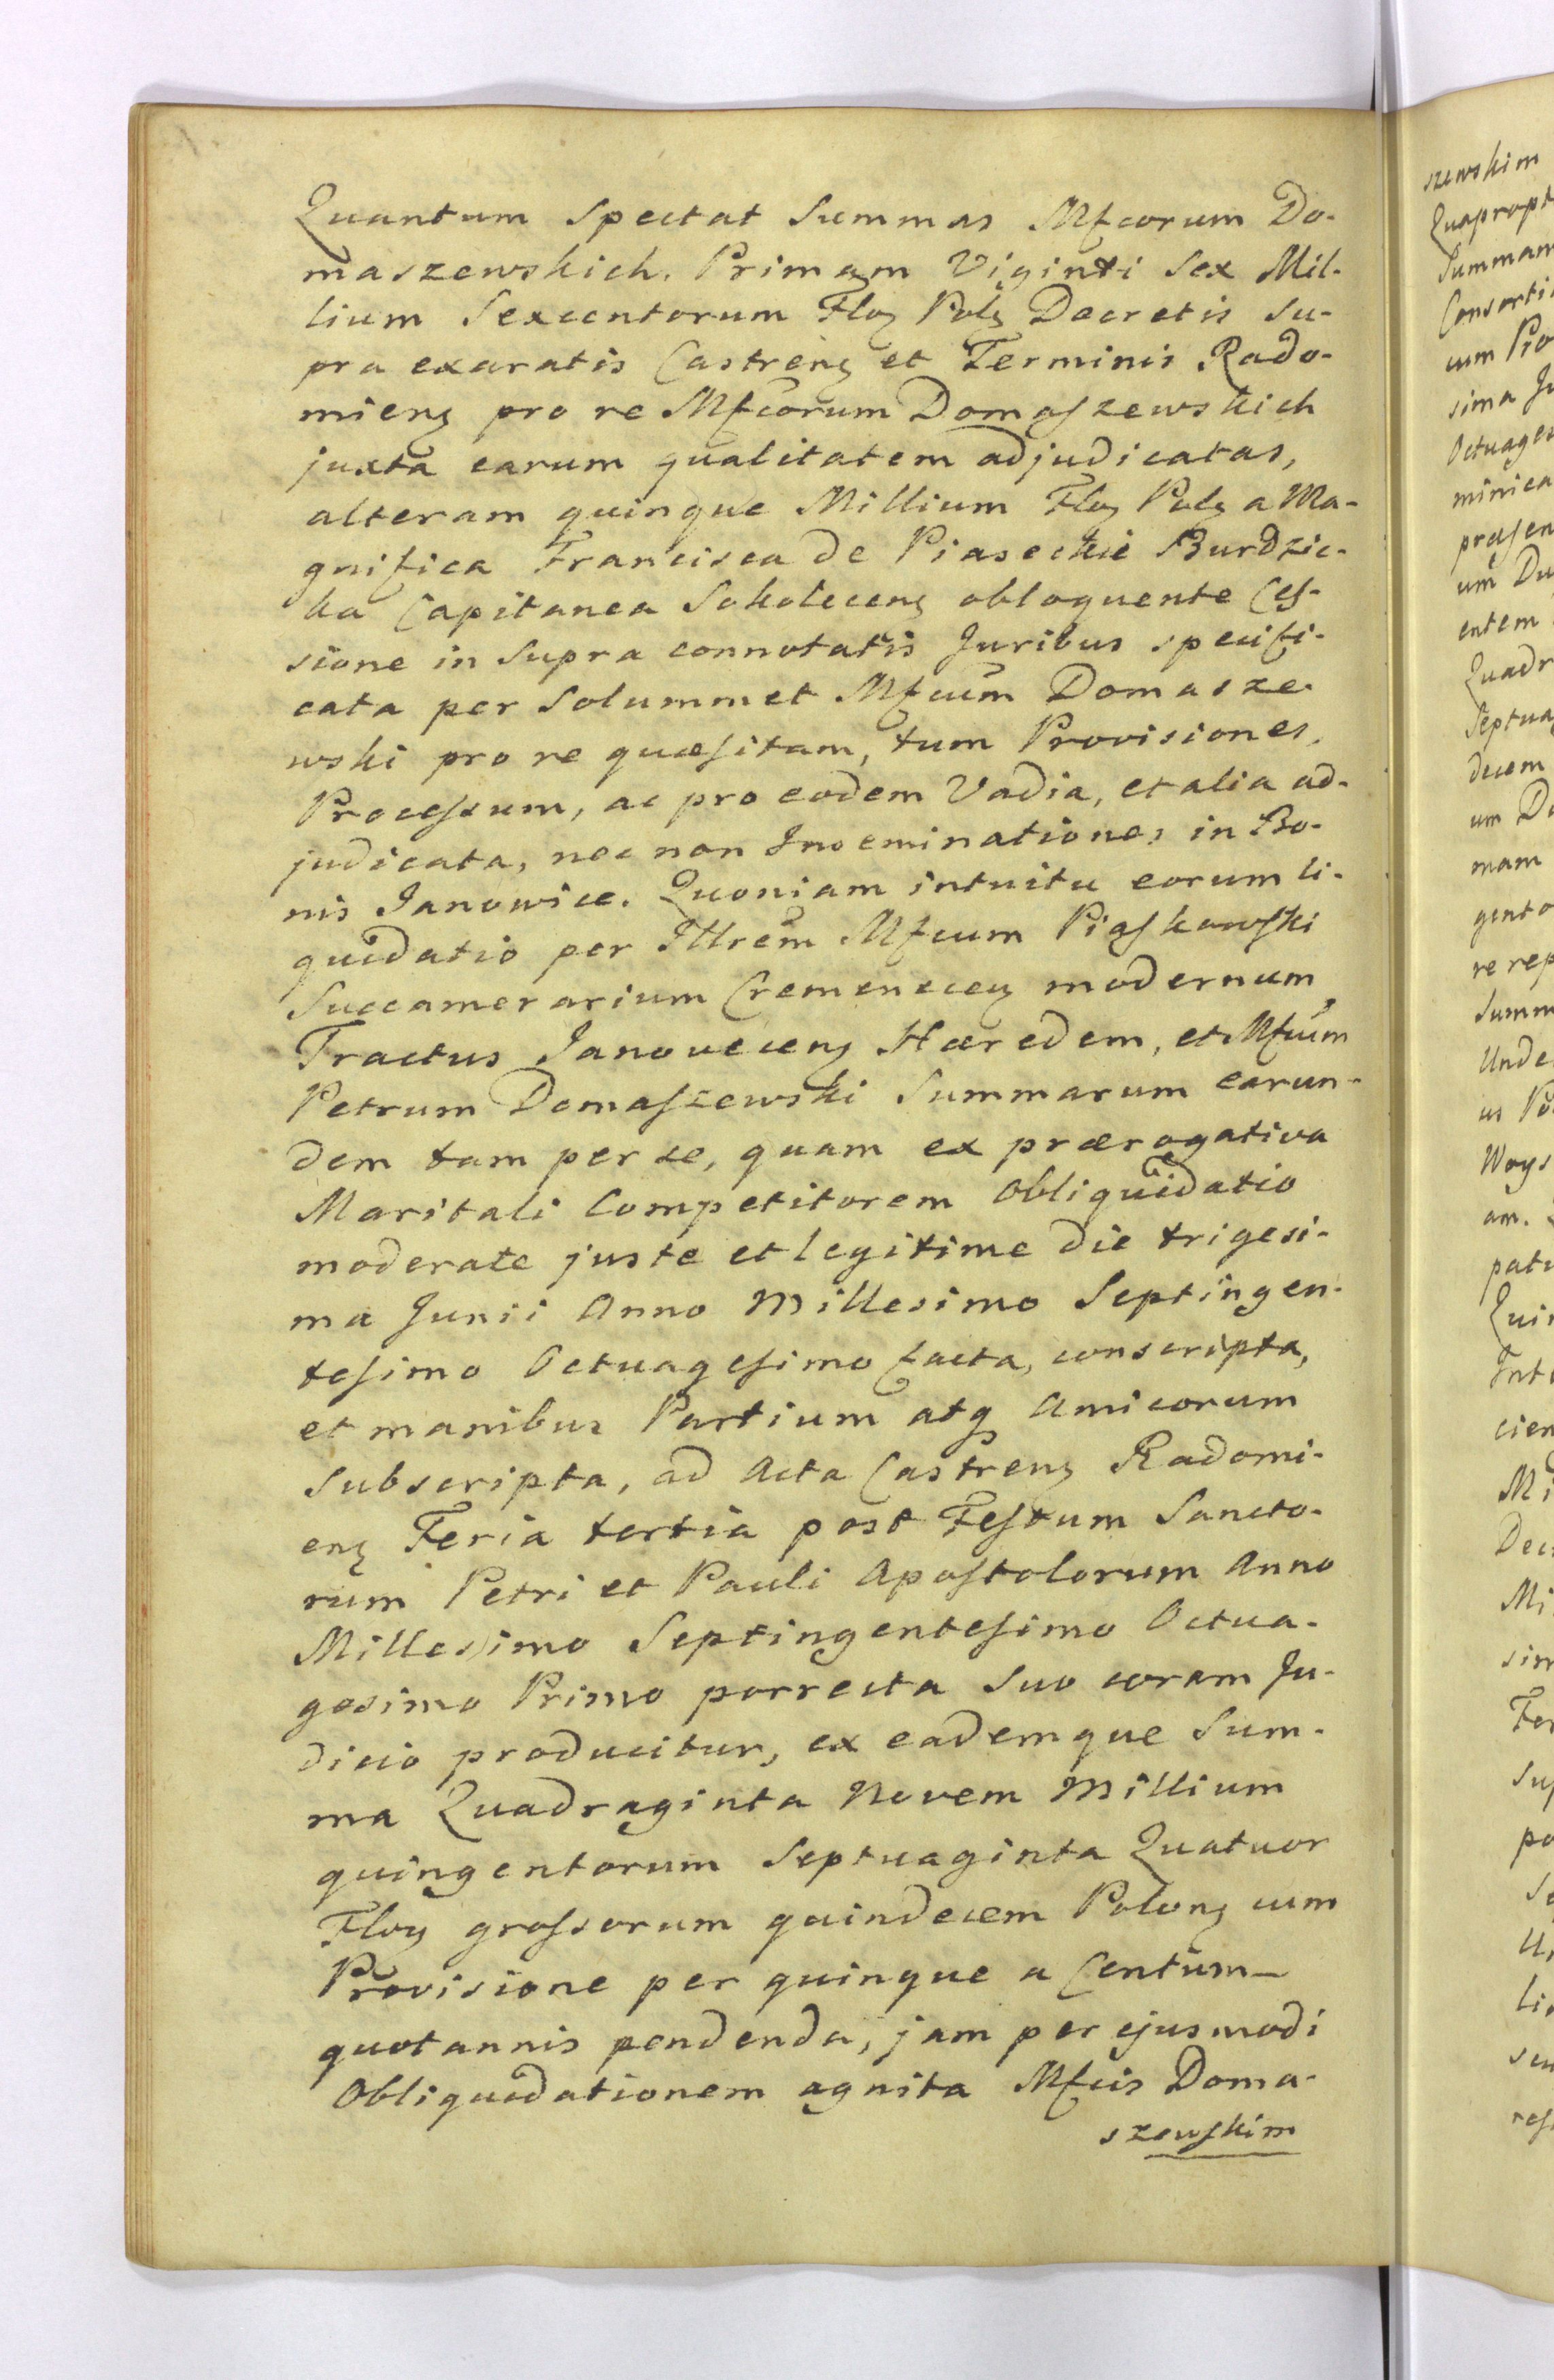 Quantum Spectat Summas Mfcorum Do-
maszewskich. Primam Viginti Sex Mil-
lium Sexcentorum Floꝫ Polꝫ Decretis Su-
pra exaratis Castrenꝫ et Terminis Rado-
mienꝫ pro re Mfcorum Domaſzewskich
juxta earum qualitatem adjudicatas,
alteram quinque Millium Floꝫ Polꝫ a Ma-
gnifica Francisca de Piaseckie Burdzic-
ka Capitanea Sokolecenꝫ obloquente Ceſ-
sione in Supra connotatis Juribus specifi-
cata per Solummet Mfcum Domasze-
wski pro re quæſitam, tum Provisiones,
Proceſsum, ac pro eodem Vadia, et alia ad-
judicata, nec non Inseminationes in Bo-
nis Janowice. Quoniam intuitu eorum li-
quidatio per Illrem Mfcum Piaſkowſki
Succamerarium Cremenecenꝫ modernum
Tractus Janovecenꝫ Hæredem, et Mfcum
Petrum Domaſzewski Summarum earun-
dem tam per se, quam ex prærogativa
Maritali Competitorem Obliquidatio
moderate juste et legitime die trigesi-
ma Junii Anno Millesimo Septingen-
teſimo Octuageſimo facta, conscripta,
et manibus Partium atqꝫ Amicorum
Subscripta, ad Acta Castrenꝫ Radomi-
enꝫ Feria tertia post Feſtum Sancto-
rum Petri et Pauli Apoſtolorum Anno
Millesimo Septingenteſimo Octua-
gesimo Primo porrecta Suo coram Ju-
dicio producitur, ex eademque Sum-
ma Quadraginta Novem Millium
quingentorum Septuaginta Quatuor
Floꝫ groſsorum quindecem Polonꝫ cum
Provisione per quinque a Centum-
quotannis pendenda, jam per ejusmodi
Obliquidationem agnita Mfcis Doma-
szewſkim
szewskim
Quapropt
Summam
Consorti
um Pio
sima Ju
Octuages
minica
præſen
um Du
entem
Quadr
Septua
decem
um Do
mam
gento
re rep
Summ
Unde
us Po
Woys
am.
pati
Qui
Int
cien
Mi
Dec
Mi
sim
Fer
Sup
po
li